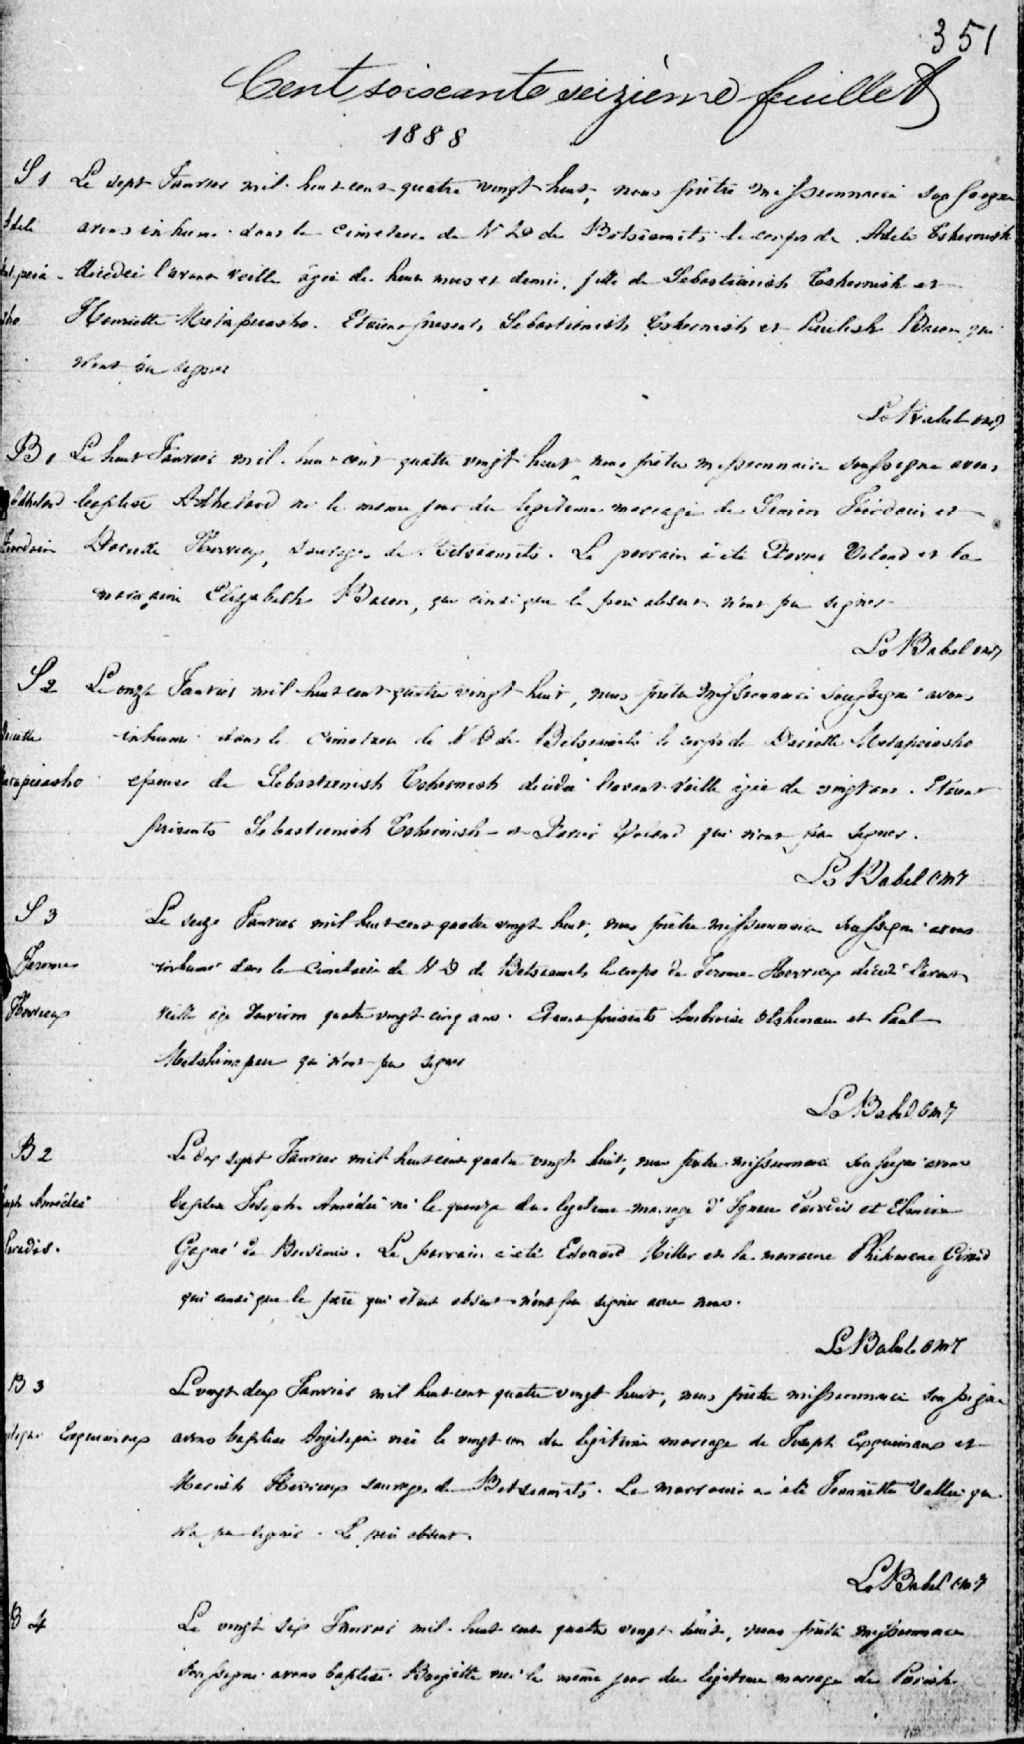 351
Cent soixante seizième feuillet
1888
S 1 Le sept Janvier mil huit cent quatre vingt huit, nous prêtre missionnaire soussigné
Adele avons inhumé dans le cimetiere de N D de Betsiamits le corps de Adele Tshernish
décédée l'avant veille agée de huit mois et demie, fille de Sebastianish Tshernish et
Henriette Metapeasho. Etaient présents Sebastienish Tshernish et Paulish Bacon qui
n'ont su signer
L. Babel omi
B 1 Le huit Janvier mil huit cent quatre vingt huit nous prêtre missionnaire soussigné avons
Adhelard baptisé Adhelard né le meme jour du legitime mariage de Simeon et
Hervieux, sauvages de Betsiamits. Le parrain a été Pierre Volant et la
marraine Elizabeth Bacon, qui ainsi que le père absent n'ont pu signer
L. Babel omi
S 2 Le onze Janvier mil huit cent quatre vingt huit, nous prêtre missionnaire soussigné avons
inhumé dans le cimetiere de N D de Betsiamits le corps de Metapeasho
epouse de Sebastienish Tshernish décédée l'avant veille agée de vingt ans. Etaient
présents Sebastienish Tshernish et Volant qui n'ont pu signer.
L. Babel omi
S 3 Le seize Janvier mil huit cent quatre vingt huit, nous prêtre missionnaire soussigné avons
Jerome inhumé dans le cimetiere de N D de Betsiamits le corps de Jerome Hervieux décédé l'avant
Hervieux veille agé d'environ quatre vingt cinq ans. Etaient présents Ambroise et Paul
qui n'ont pu signer
L. Babel omi
B 2 Le dix sept Janvier mil huit cent quatre vingt huit, nous prêtre missionnaire soussigné avons
Joseph Amédée baptisé Joseph Amédée né le quinze du legitime mariage d'Ignace Paradis et Elmira
Paradis. Gagné de Bersimis. Le parrain a été Edouard Miller et la marraine Philomene Girard
qui ainsi que le père qui était absent n'ont pu signer avec nous.
L. Babel omi
B 3 Le vingt deux Janvier mil huit cent quatre vingt huit, nous prêtre missionnaire soussigné
Esquimaux avons baptisé née le vingt un du legitime mariage de Joseph Esquimaux et
Hervieux sauvages de Betsiamits. La marraine a été Jeannette Vallée qui
n'a pu signer. Le père absent.
L. Babel omi
B 4 Le vingt six Janvier mil huit cent quatre vingt huit, nous prêtre missionnaire
soussigné avons baptisé Brigitte née le même jour du legitime mariage de